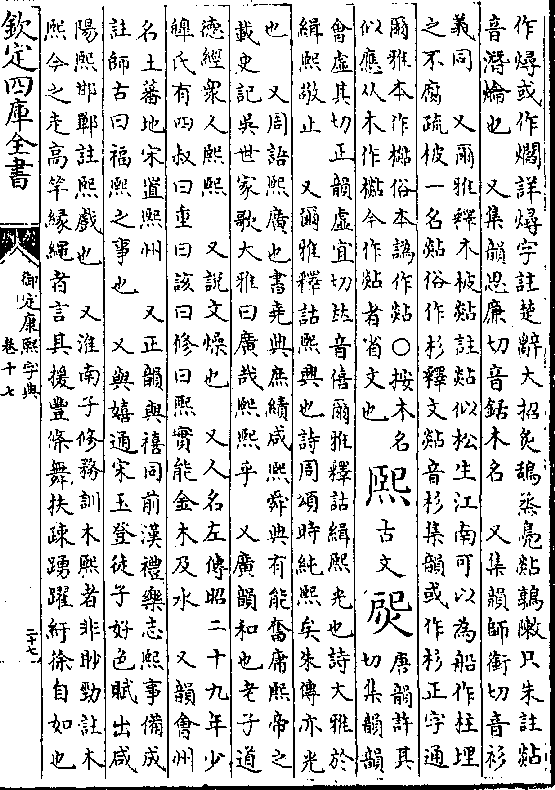 作燖或作爓詳燖字註楚辭大招炙鴰烝鳧煔鶉敶只朱註煔
音潛爚也　又集韻思廉切音銛木名　又集韻師銜切音衫
義同　又爾雅釋木柀煔註煔似松生江南可以為船作柱埋
之不腐疏柀一名煔俗作杉釋文煔音杉集韻或作杉正字通
爾雅本作𣘻俗本譌作煔○按木名
似應从木作𣘻今作煔者省文也
熙
古文
唐韻許其
切集韻韻
會虛其切正韻虛宜切𠀤音僖爾雅釋詁緝熙光也詩大雅於
緝熙敬止　又爾雅釋詁熙興也詩周頌時純熙矣朱傳亦光
也　又周語熙廣也書堯典庶績咸熙舜典有能奮庸熙帝之
載史記吳世家歌大雅曰廣哉熙熙乎　又廣韻和也老子道
德經衆人熙熙　又說文燥也　又人名左傳昭二十九年少
皡氏有四叔曰重曰該曰修曰熙實能金木及水　又韻會州
名土蕃地宋置熙州　又正韻與禧同前漢禮樂志熙事備成
註師古曰福熙之事也　又與嬉通宋玉登徒子好色賦出咸
陽熙邯鄲註熙戲也　又淮南子修務訓木熙者非眇勁註木
熙今之走高竿緣繩者言其援豐條舞扶疎踴躍紆徐自如也
欽定四庫全書
御定康熙字典
卷十七
二十七